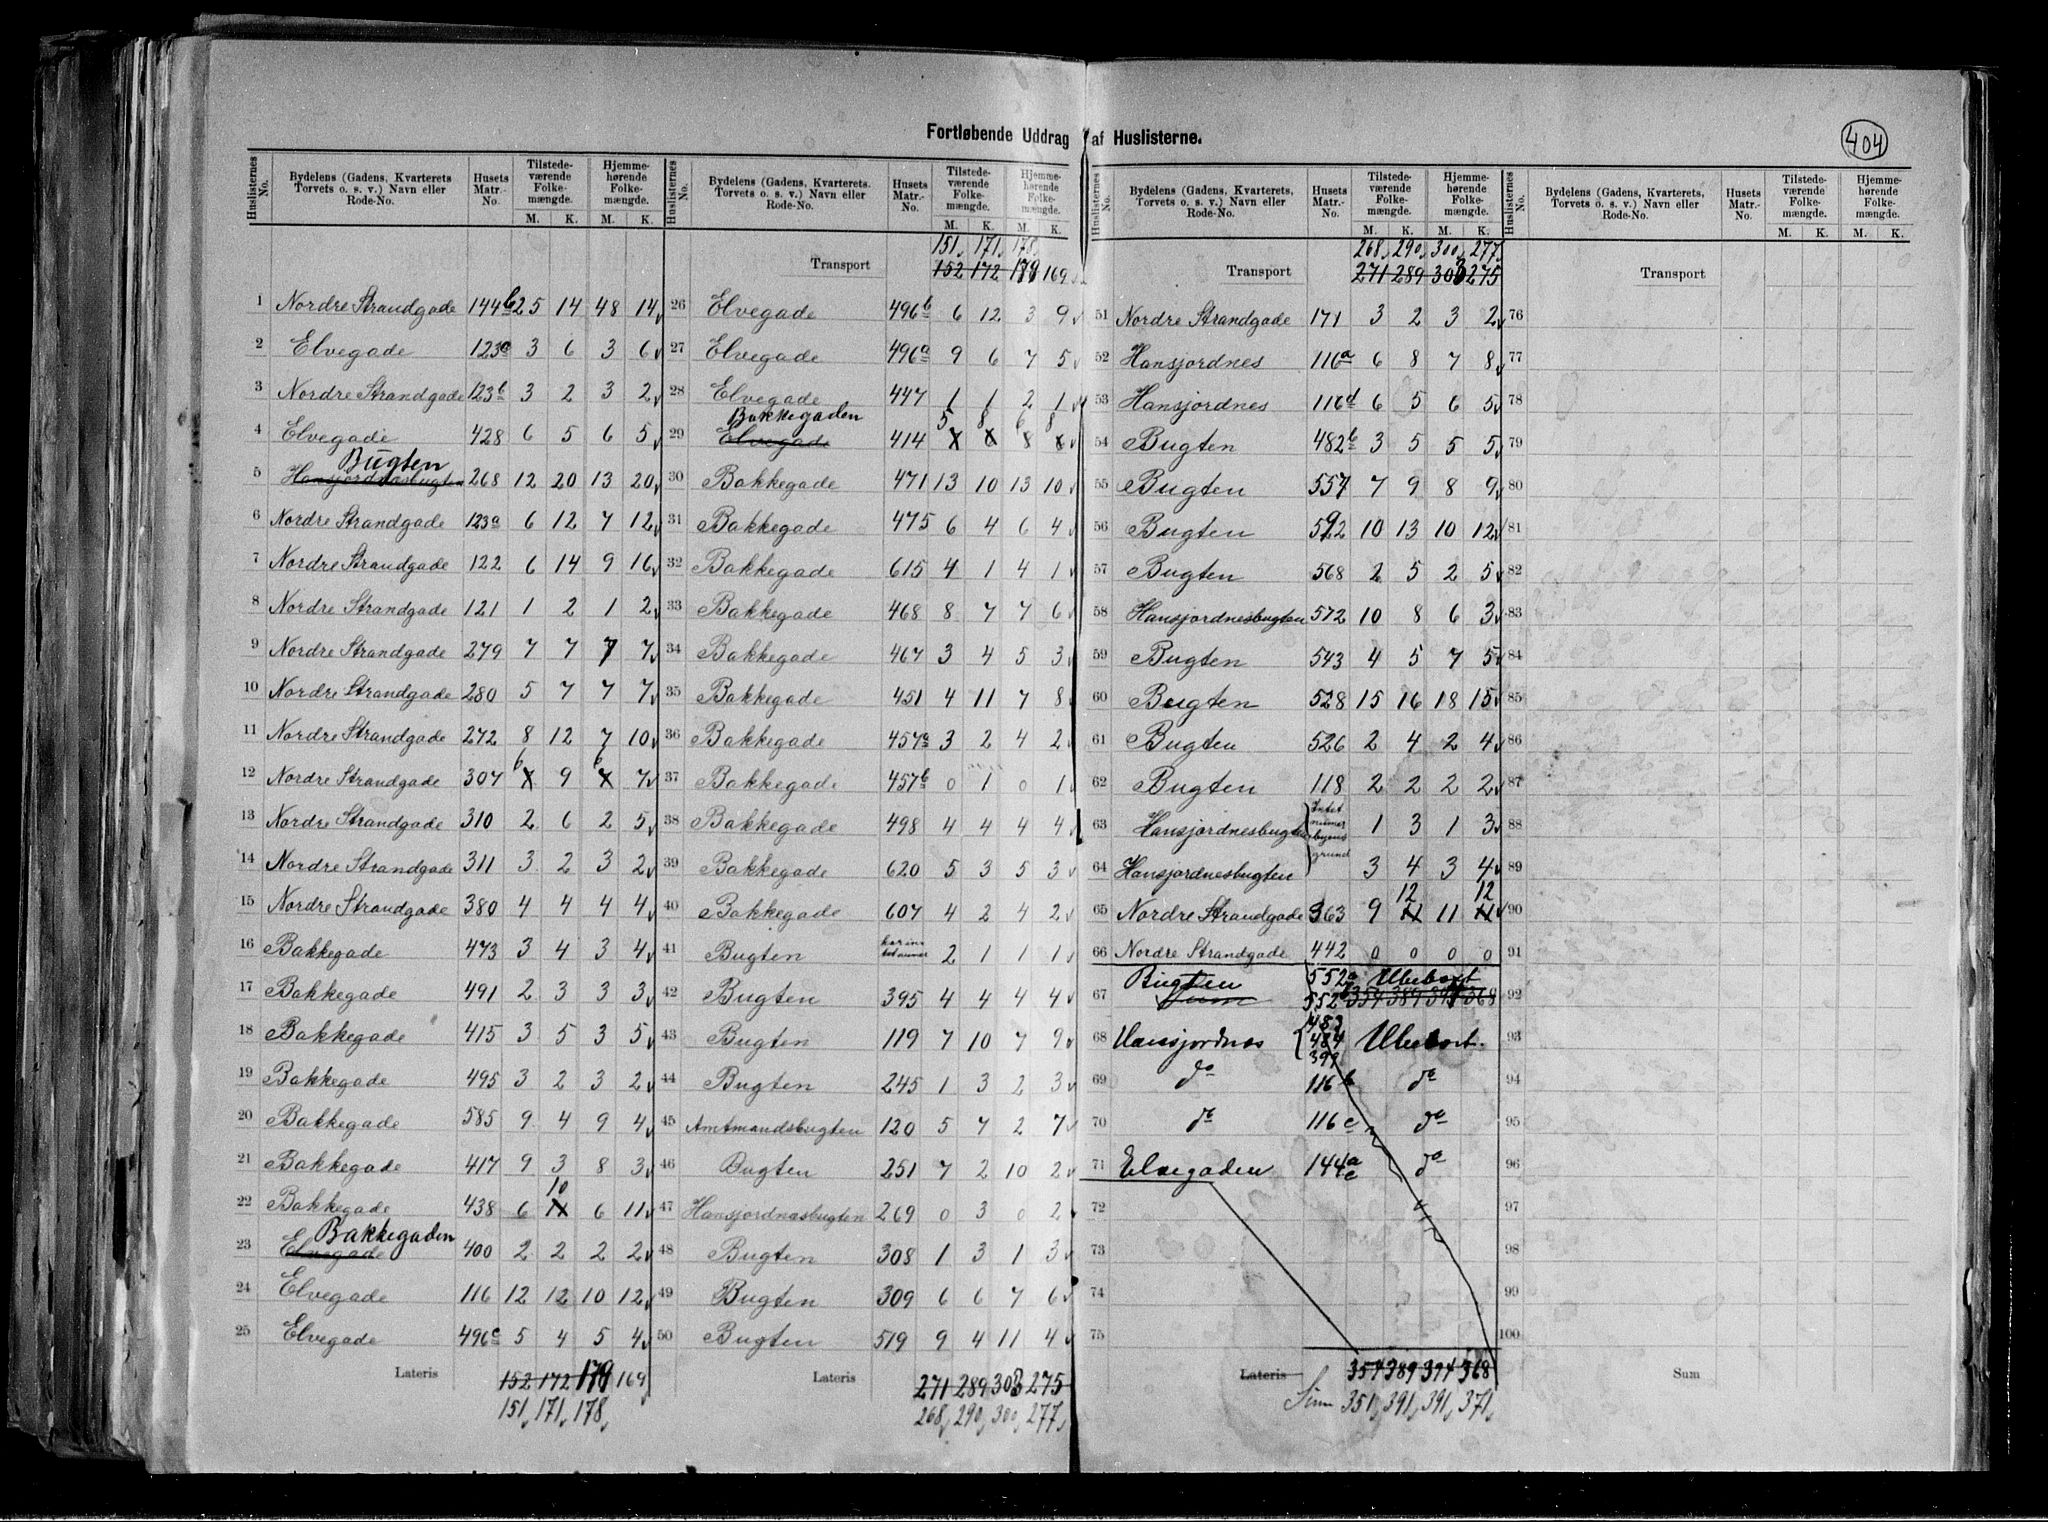 404
Fortløbende Uddrag af Huslisterne.
Huslisternes No. | Bydelens (Gadens, Kvarterets, Torvets o. s. v.) Navn eller Rode-No. | Husets Matr.-No. | Tilstedeværende Folkemængde. M. K. | Hjemmehørende Folkemængde. M. K.
1 Nordre Strandgade 144b 25 14 48 14
2 Elvegade 123a 3 6 3 6
3 Nordre Strandgade 123b 3 2 3 2
4 Elvegade 428 6 5 6 5
Bugten
5 Hansjordnæsbugten 268 12 20 13 20
6 Nordre Strandgade 123a 6 12 7 12
7 Nordre Strandgade 122 6 14 9 16
8 Nordre Strandgade 121 1 2 1 2
9 Nordre Strandgade 279 7 7 7 7
10 Nordre Strandgade 280 5 7 7 7
11 Nordre Strandgade 272 8 12 7 10
12 Nordre Strandgade 307 6 9 6 7
13 Nordre Strandgade 310 2 6 2 5
14 Nordre Strandgade 311 3 2 3 2
15 Nordre Strandgade 380 4 4 4 4
16 Bakkegade 473 3 4 3 4
17 Bakkegade 491 2 3 3 3
18 Bakkegade 415 3 5 3 5
19 Bakkegade 495 3 2 3 2
20 Bakkegade 585 9 4 9 4
21 Bakkegade 417 9 3 8 3
10
22 Bakkegade 438 6 11 6 11
Bakkegaden
23 Elvegade 400 2 2 2 2
24 Elvegade 116 12 12 10 12
25 Elvegade 496c 5 4 5 4
Lateris 152 172 179 169
151 171 178
Huslisternes No. | Bydelens (Gadens, Kvarterets, Torvets o. s. v.) Navn eller Rode-No. | Husets Matr.-No. | Tilstedeværende Folkemængde. M. K. | Hjemmehørende Folkemængde. M. K.
151 171 178
Transport 152 172 179 169
26 Elvegade 496b 6 12 3 9
27 Elvegade 496a 9 6 7 5
28 Elvegade 447 1 1 2 1
Bakkegaden 5 8 6 8
29 Elvegade 414
30 Bakkegade 471 13 10 13 10
31 Bakkegade 475 6 4 6 4
32 Bakkegade 615 4 1 4 1
33 Bakkegade 468 8 7 7 6
34 Bakkegade 467 3 4 5 3
35 Bakkegade 451 4 11 7 8
36 Bakkegade 457a 3 2 4 2
37 Bakkegade 457b 0 1 0 1
38 Bakkegade 498 4 4 4 4
39 Bakkegade 620 5 3 5 3
40 Bakkegade 607 4 2 4 2
41 Bugten har intet numer 2 1 1 1
42 Bugten 395 4 4 4 4
43 Bugten 119 7 10 7 9
44 Bugten 245 1 3 2 3
45 Amtmandsbugten 120 5 7 2 7
46 Bugten 251 7 2 10 2
47 Hansjordnæsbugten 269 0 3 0 2
48 Bugten 308 1 3 1 3
49 Bugten 309 6 6 7 6
50 Bugten 519 9 4 11 4
Lateris 271 289 303 275
268 290 300 277
Huslisternes No. | Bydelens (Gadens, Kvarterets, Torvets o. s. v.) Navn eller Rode-No. | Husets Matr.-No. | Tilstedeværende Folkemængde. M. K. | Hjemmehørende Folkemængde. M. K.
268 290 300 277
Transport 271 289 303 275
51 Nordre Strandgade 171 3 2 3 2
52 Hansjordnes 116a 6 8 7 8
53 Hansjordnes 116d 6 5 6 5
54 Bugten 482b 3 5 5 5
55 Bugten 557 7 9 8 9
56 Bugten 592 10 13 10 12
57 Bugten 568 2 5 2 5
58 Hansjordnesbugten 572 10 8 6 3
59 Bugten 543 4 5 7 5
60 Bugten 528 15 16 18 15
61 Bugten 526 2 4 2 4
62 Bugten 118 2 2 2 2
63 Hansjordnesbugten Intet numer byens grund 1 3 1 3
64 Hansjordnesbugten 3 4 3 4
12 12
65 Nordre Strandgade 363 9 11 11 11
66 Nordre Strandgade 442 0 0 0 0
Bugten 552a Ubeboet
67 Sum 552b 354 389 394 368
68 Hansjordnæs 483 484 399 Ubeboet.
69 do 116b do
70 do 116c do
71 Elvegaden 144a c do
72
73
74
75
Lateris 354 389 394 368
Sum 351 391 391 371
Huslisternes No. | Bydelens (Gadens, Kvarterets, Torvets o. s. v.) Navn eller Rode-No. | Husets Matr.-No. | Tilstedeværende Folkemængde. M. K. | Hjemmehørende Folkemængde. M. K.
Transport
76
77
78
79
80
81
82
83
84
85
86
87
88
89
90
91
92
93
94
95
96
97
98
99
100
Sum